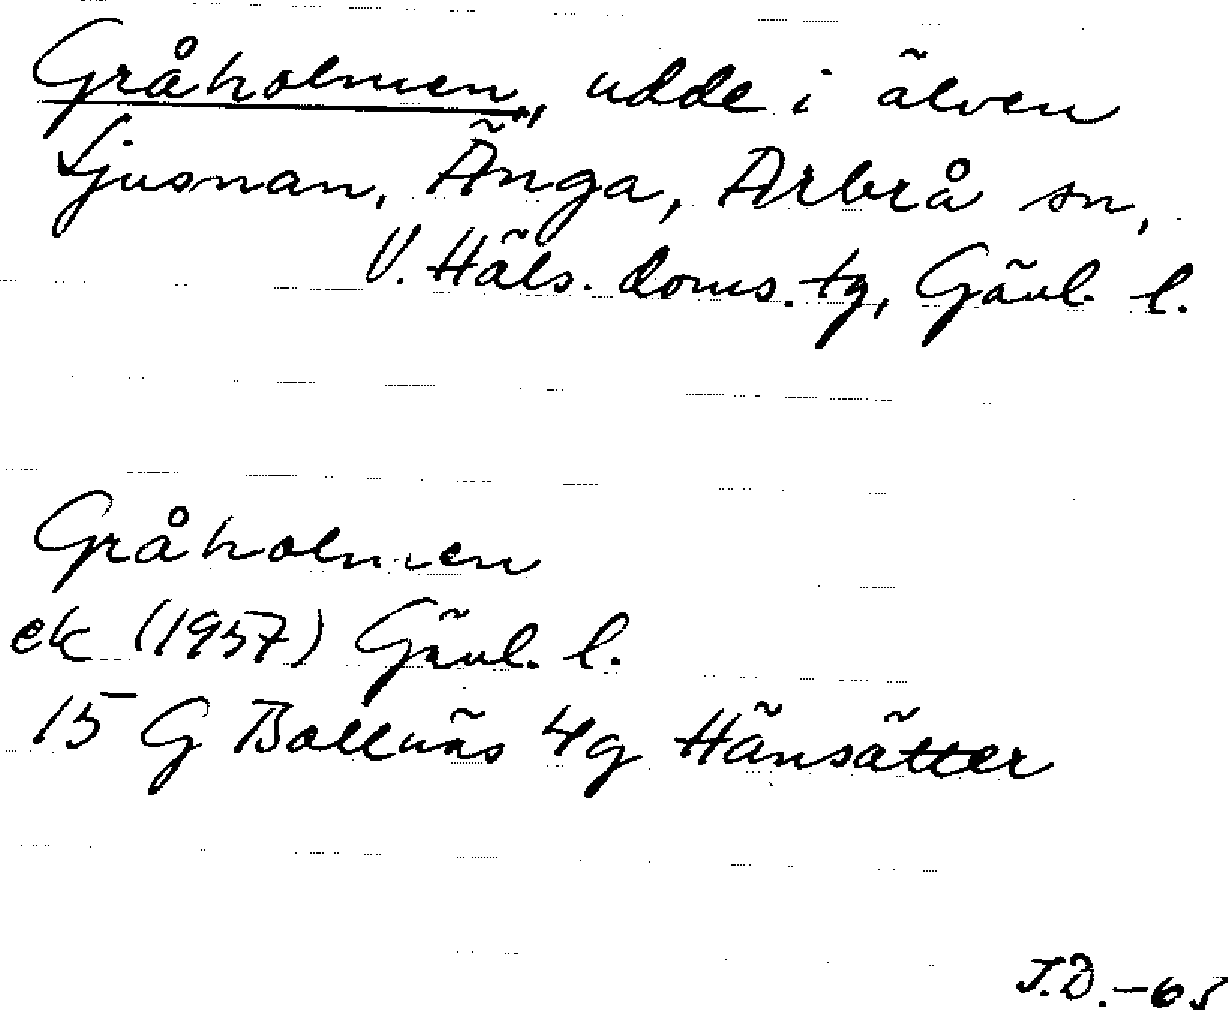 Gråholmen, udde i älven
Ljusnan, Änga, Arbrå sn,
V. Häls. doms. tg, Gävl. l.
Gråholmen
ek (1957) Gävl. l.
15 G Bollnäs 4g Hänsätter
J.D. -65